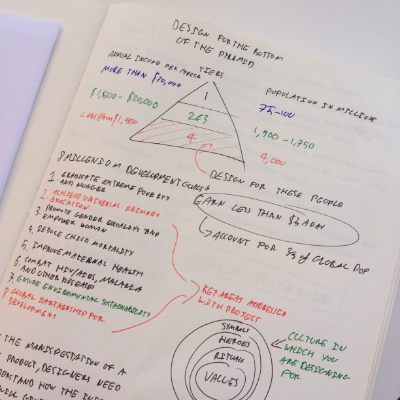 DESIGN FOR THE BOTTOM
OF THE PYRAMID
ANNUAL INCOME PER CAPITA
TIERS
POPULATION IN MILLIONS
MORE THAN $20,000
1
75-100
$1,500 - $20,000
2&3
1,500 - 1,750
Less than $1,500
4
4,000
DESIGN FOR THESE PEOPLE
EARN LESS THAN $3 A DAY
ACCOUNT FOR 2/3 OF GLOBAL POP
8 MILLENIUM DEVELOPMENT GOALS
1 ERADICATE EXTREME POVERTY
AND HUNGER
2 ACHIEVE UNIVERSAL PRIMARY
EDUCATION
3 PROMOTE GENDER EQUALITY AND
EMPOWER WOMAN
4 REDUCE CHILD MORTALITY
5 IMPROVE MATERNAL HEALTH
6 COMBAT HIV/AIDS, MALARIA
AND OTHER DISEASES
7 ENSURE ENVIRONMENTAL SUSTAINABILITY
8 GLOBAL PARTNERSHIP FOR
DEVELOPMENT
KEY AREAS ADDRESSED
WITH PROJECT
SYMBOLS
HEROES
RITUALS
VALUES
CULTURE IN
WHICH YOU
ARE DESIGNING
FOR
THE MANISPESTATION OF A
PRODUCT, DESIGNERS NEED
HOW THE